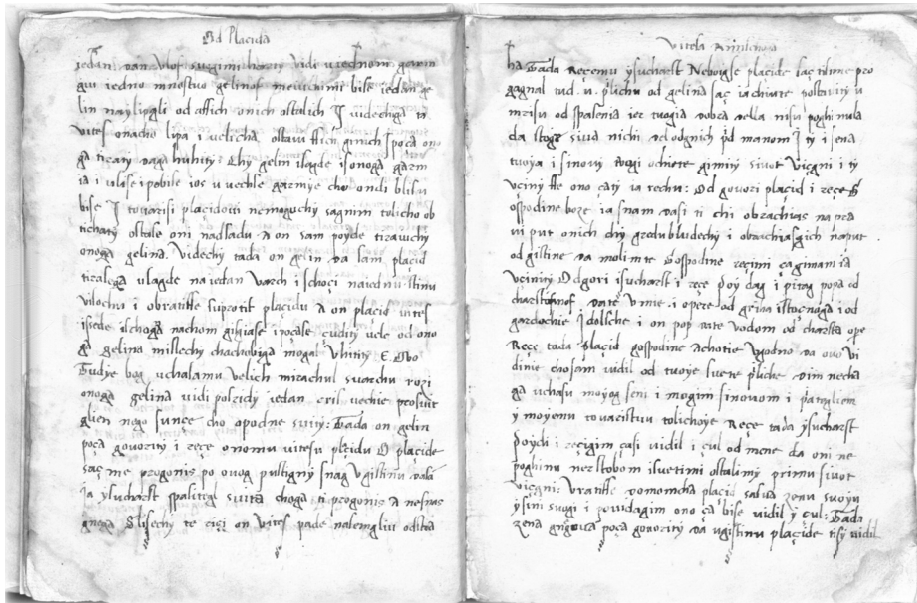 Od Placida
jedan dan
giu iedno mnostuo gelinof meuchimi bise iedan ge
lin naylipgli od assich onich ostalich I videchiga ta
vites onacho lipa i velicha ostaui ssich ginich I poça ono
ga tirati daga huhity: Chy gelin ulagde isonoga garm
ia i ulise i pobise ios u vechse garmye cho ondi blisu
bise I touarisi placidoui nemoguchy sagnim tolicho ob
tichaty ostase oni nadsadu A on sam poyde tirauchy
onoga gelina. Videchy tada on gelin da sam placid
tiraiega ulagde na iedan varch i schoçi naiednu stinu
visochu i obratisse suprotif placidu A on placid vites
isede ischogna nachom gisiase i poçase çudity uele od ono
ga gelina mislechy chachobiga mogal vhitity E. Ovo
Tudye bog uchasamu velich mirachul suarchu rozi
onoga gelina vidi poltridy iedan cril vechie prosuit
glien nego sunce cho opodne suity: Tada on gelin
poça govority i reçe onomu vitesu plçidu O placide
saç me progonis po ovog pustigny snag vgistinu dasa
Ja ysucharst spasitegl suita choga ti progonis A nesnas
gnega Slisechy te riçi on vites pade nasemgliu od stra
Vitesa
ha Tada Reçemu ysucharst Neboigse placide saç tisime pro
gagnal tad. u. prilichu od gelina saç ia chiuate postauity u
mrisu od spasenia ier tuogia dobra della nisu poghinula
da stogl suud nichi sel odgnich prid manom I ty i sena
tuoya i sinouy tuogi ochiete gimity siuot viçgni i ty
vçiny sse ono çaty ia rechu: Od govori placid i reçe G
ospodine boze ia snam dasi ti chi obrachias na pra
ui put onich chy gredubludechy i obrachiasgich naput
od gistine da molimte Gospodine reçimi ça gimam ia
vçinity Odgori isucharst i reçe Poy dag i pitag popa cd
charstianof date v mie i opere od grina istoçnoga i od
gardochie Idolsche i on pop date vodom od charsta ope
Reçe tada plaçid gospodine Achotie vgodno da ovo vi
dinie chosam vidil od tuoye suete priliche dim necha
ga uchasu moyog seni i mogim sinouom i parigliem
y moyemu touaristuu tolichoye Reçe tada ysucharst
Poydi i reçigim çasi vidil i çul od mene da oni ne
poghinu ner stobom isuetimi ostalimy primu siuot
viçgni: Vratisse domomcha placid salua zenu suoyu
ysini suogi i povidagim ono ça bise vidil y çul: Tada
zena gnigova poça govority da vgistinu plaçide tisy vidil